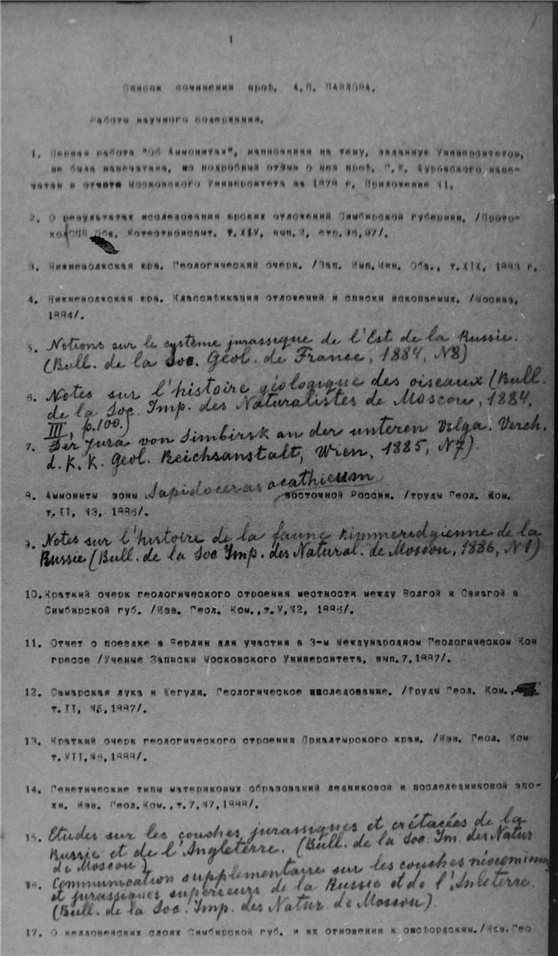 1
1
Список сочинений проф. А.П. ПАВЛОВА.
Работы научного содержания.
1. Первая работа "Об Аммонитах", написанная на тему, заданную Университетом,
не была напечатана, но подробный отзыв о ней проф. Г.Е. Щуровского напе-
чатан в отчете Московского Университета за 1878 г. Приложение №1.
2. О результатах исследования юрских отложений Симбирской губернии. /Прото-
кол СПБ Общ. Естествоиспыт. т.XIV, вып.2, стр.96,97/.
3. Нижневолжская юра. Геологический очерк. /Зап. Имп.Мин. Общ., т.XIX, 1883 г.
4. Нижневолжская юра. Классификация отложений и списки ископаемых. /Москва,
1884/.
5. Notions sur le système jurassique de l'Est de la Russie.
(Bull. de la Soc. Géol. de France, 1884, N8)
6. Notes sur l'histoire géologique des oiseaux (Bull.
de la Soc. Imp. des Naturalistes de Moscou, 1884,
III, p.100.)
7. Der Jura von Simbirsk an der unteren Volga. Verch.
d. K. K. Geol. Reichsanstalt, Wien, 1885, N7).
8. Аммониты зоны Aspidoceras acathicum восточной России. /Труды Геол. Ком.
т.II, №3, 1886/.
9. Notes sur l'histoire de la faune kimmeridgienne de la
Russie (Bull. de la Soc Imp. des Natural. de Moscou, 1886, N1)
10. Краткий очерк геологического строения местности между Волгой и Свиягой в
Симбирской губ. /Изв. Геол. Ком., т.V, №2, 1886/.
11. Отчет о поездке в Берлин для участия в 3-м Международном Геологическом Кон
грессе /Ученые Записки Московского Университета, вып.7, 1887/.
12. Самарская лука и Жегули. Геологическое исследование. /Труды Геол. Ком.,
т.II, №5, 1887/.
13. Краткий очерк геологического строения Приалтырского края. /Изв. Геол. Ком
т.VII, №6, 1888/.
14. Генетические типы материковых образований ледниковой и послеледниковой эпо-
хи. Изв. Геол.Ком., т.7, №7, 1888/.
15. Etudes sur les couches jurassiques et crétacées de la
Russie et de l'Angleterre. (Bull. de la Soc. Im. des Natur
de Moscou)
16. Communication supplementaire sur les couches néocomiennes
et jurassiques superieurs de la Russie et de l'Anleterre.
(Bull. de la Soc. Imp. des Natur de Moscou).
17. О келловейских слоях Симбирской губ. и их отношении к оксфордским. /Изв.Гео